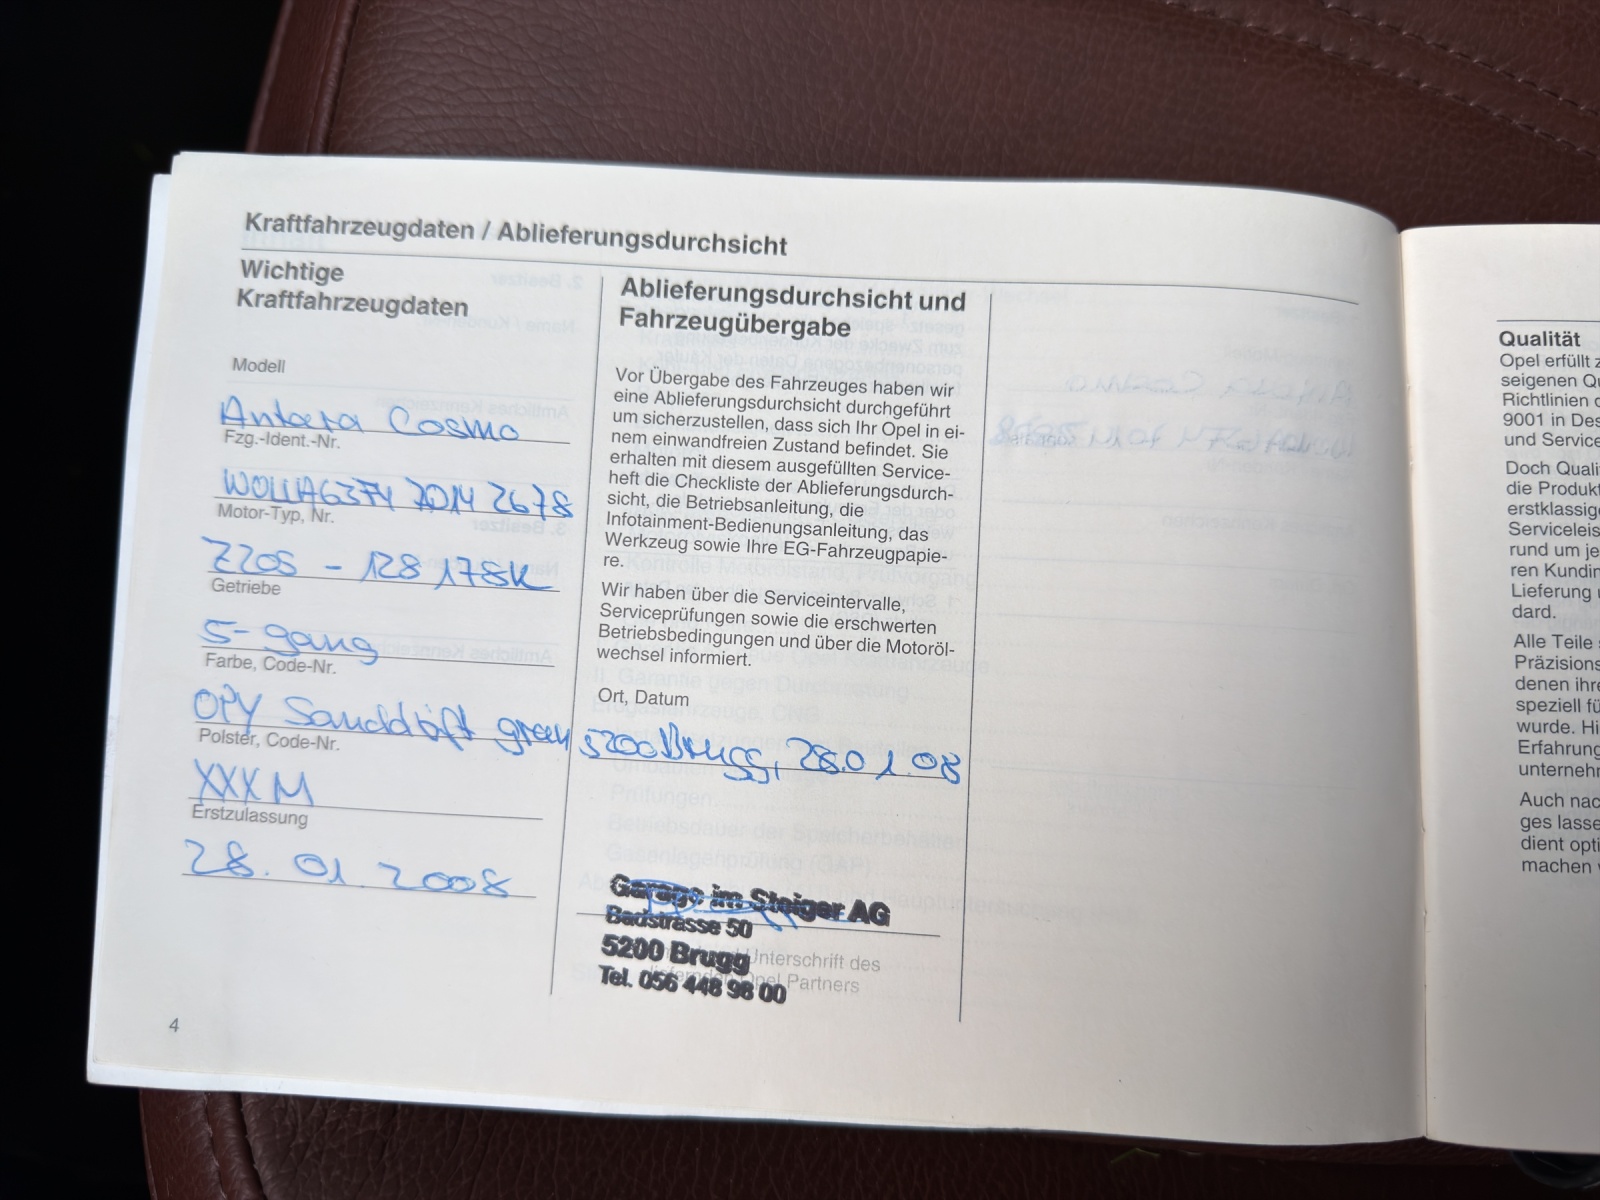 Kraftfahrzeugdaten / Ablieferungsdurchsicht
Wichtige
Kraftfahrzeugdaten
Modell
Antara Cosmo
Fzg.-Ident.-Nr.
Motor-Typ, Nr.
Z20S - 128 178K
Getriebe
5-gang
Farbe, Code-Nr.
OPY Sanddrift green
Polster, Code-Nr.
XXXM
Erstzulassung
28.01.2008
Ablieferungsdurchsicht und
Fahrzeugübergabe
Vor Übergabe des Fahrzeuges haben wir
eine Ablieferungsdurchsicht durchgeführt
um sicherzustellen, dass sich Ihr Opel in ei-
nem einwandfreien Zustand befindet. Sie
erhalten mit diesem ausgefüllten Service-
heft die Checkliste der Ablieferungsdurch-
sicht, die Betriebsanleitung, die
Infotainment-Bedienungsanleitung, das
Werkzeug sowie Ihre EG-Fahrzeugpapie-
re.
Wir haben über die Serviceintervalle,
Serviceprüfungen sowie die erschwerten
Betriebsbedingungen und über die Motoröl-
wechsel informiert.
Ort, Datum
5200 Brugg, 28.01.08
Garage im Steiger AG
Badstrasse 50
5200 Brugg
Tel. 056 448 98 00
Unterschrift des
Opel Partners
4
Qualität
Opel erfüllt z
seigenen Qu
Richtlinien d
9001 in Des
und Service
Doch Quali
die Produkt
erstklassige
Serviceleis
rund um je
ren Kundin
Lieferung u
dard.
Alle Teile s
Präzisions
denen ihre
speziell fü
wurde. Hi
Erfahrung
unternehm
Auch nac
ges lasse
dient opti
machen v